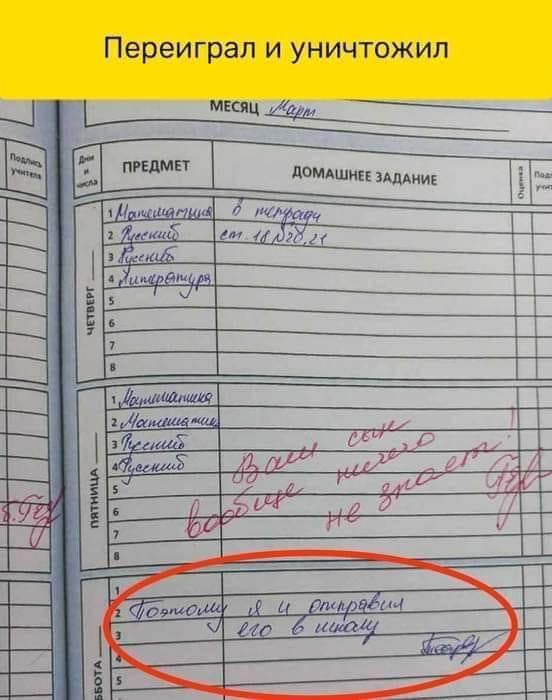 Переиграл и уничтожил
МЕСЯЦ Март
Подпись учителя
Дни и числа
ПРЕДМЕТ
ДОМАШНЕЕ ЗАДАНИЕ
Оценка
ЧЕТВЕРГ
1 Математика в тетради
2 Русский ст. 18 №20,21
3 Русский
4 Литература
5
6
7
8
ПЯТНИЦА
1 Математика
2 Математика
3 Русский
4 Русский
5
6
7
8
Ваш сын
вообще ничего
не знает!
1
2 Поэтому я и отправил
3 его в школу
4
5